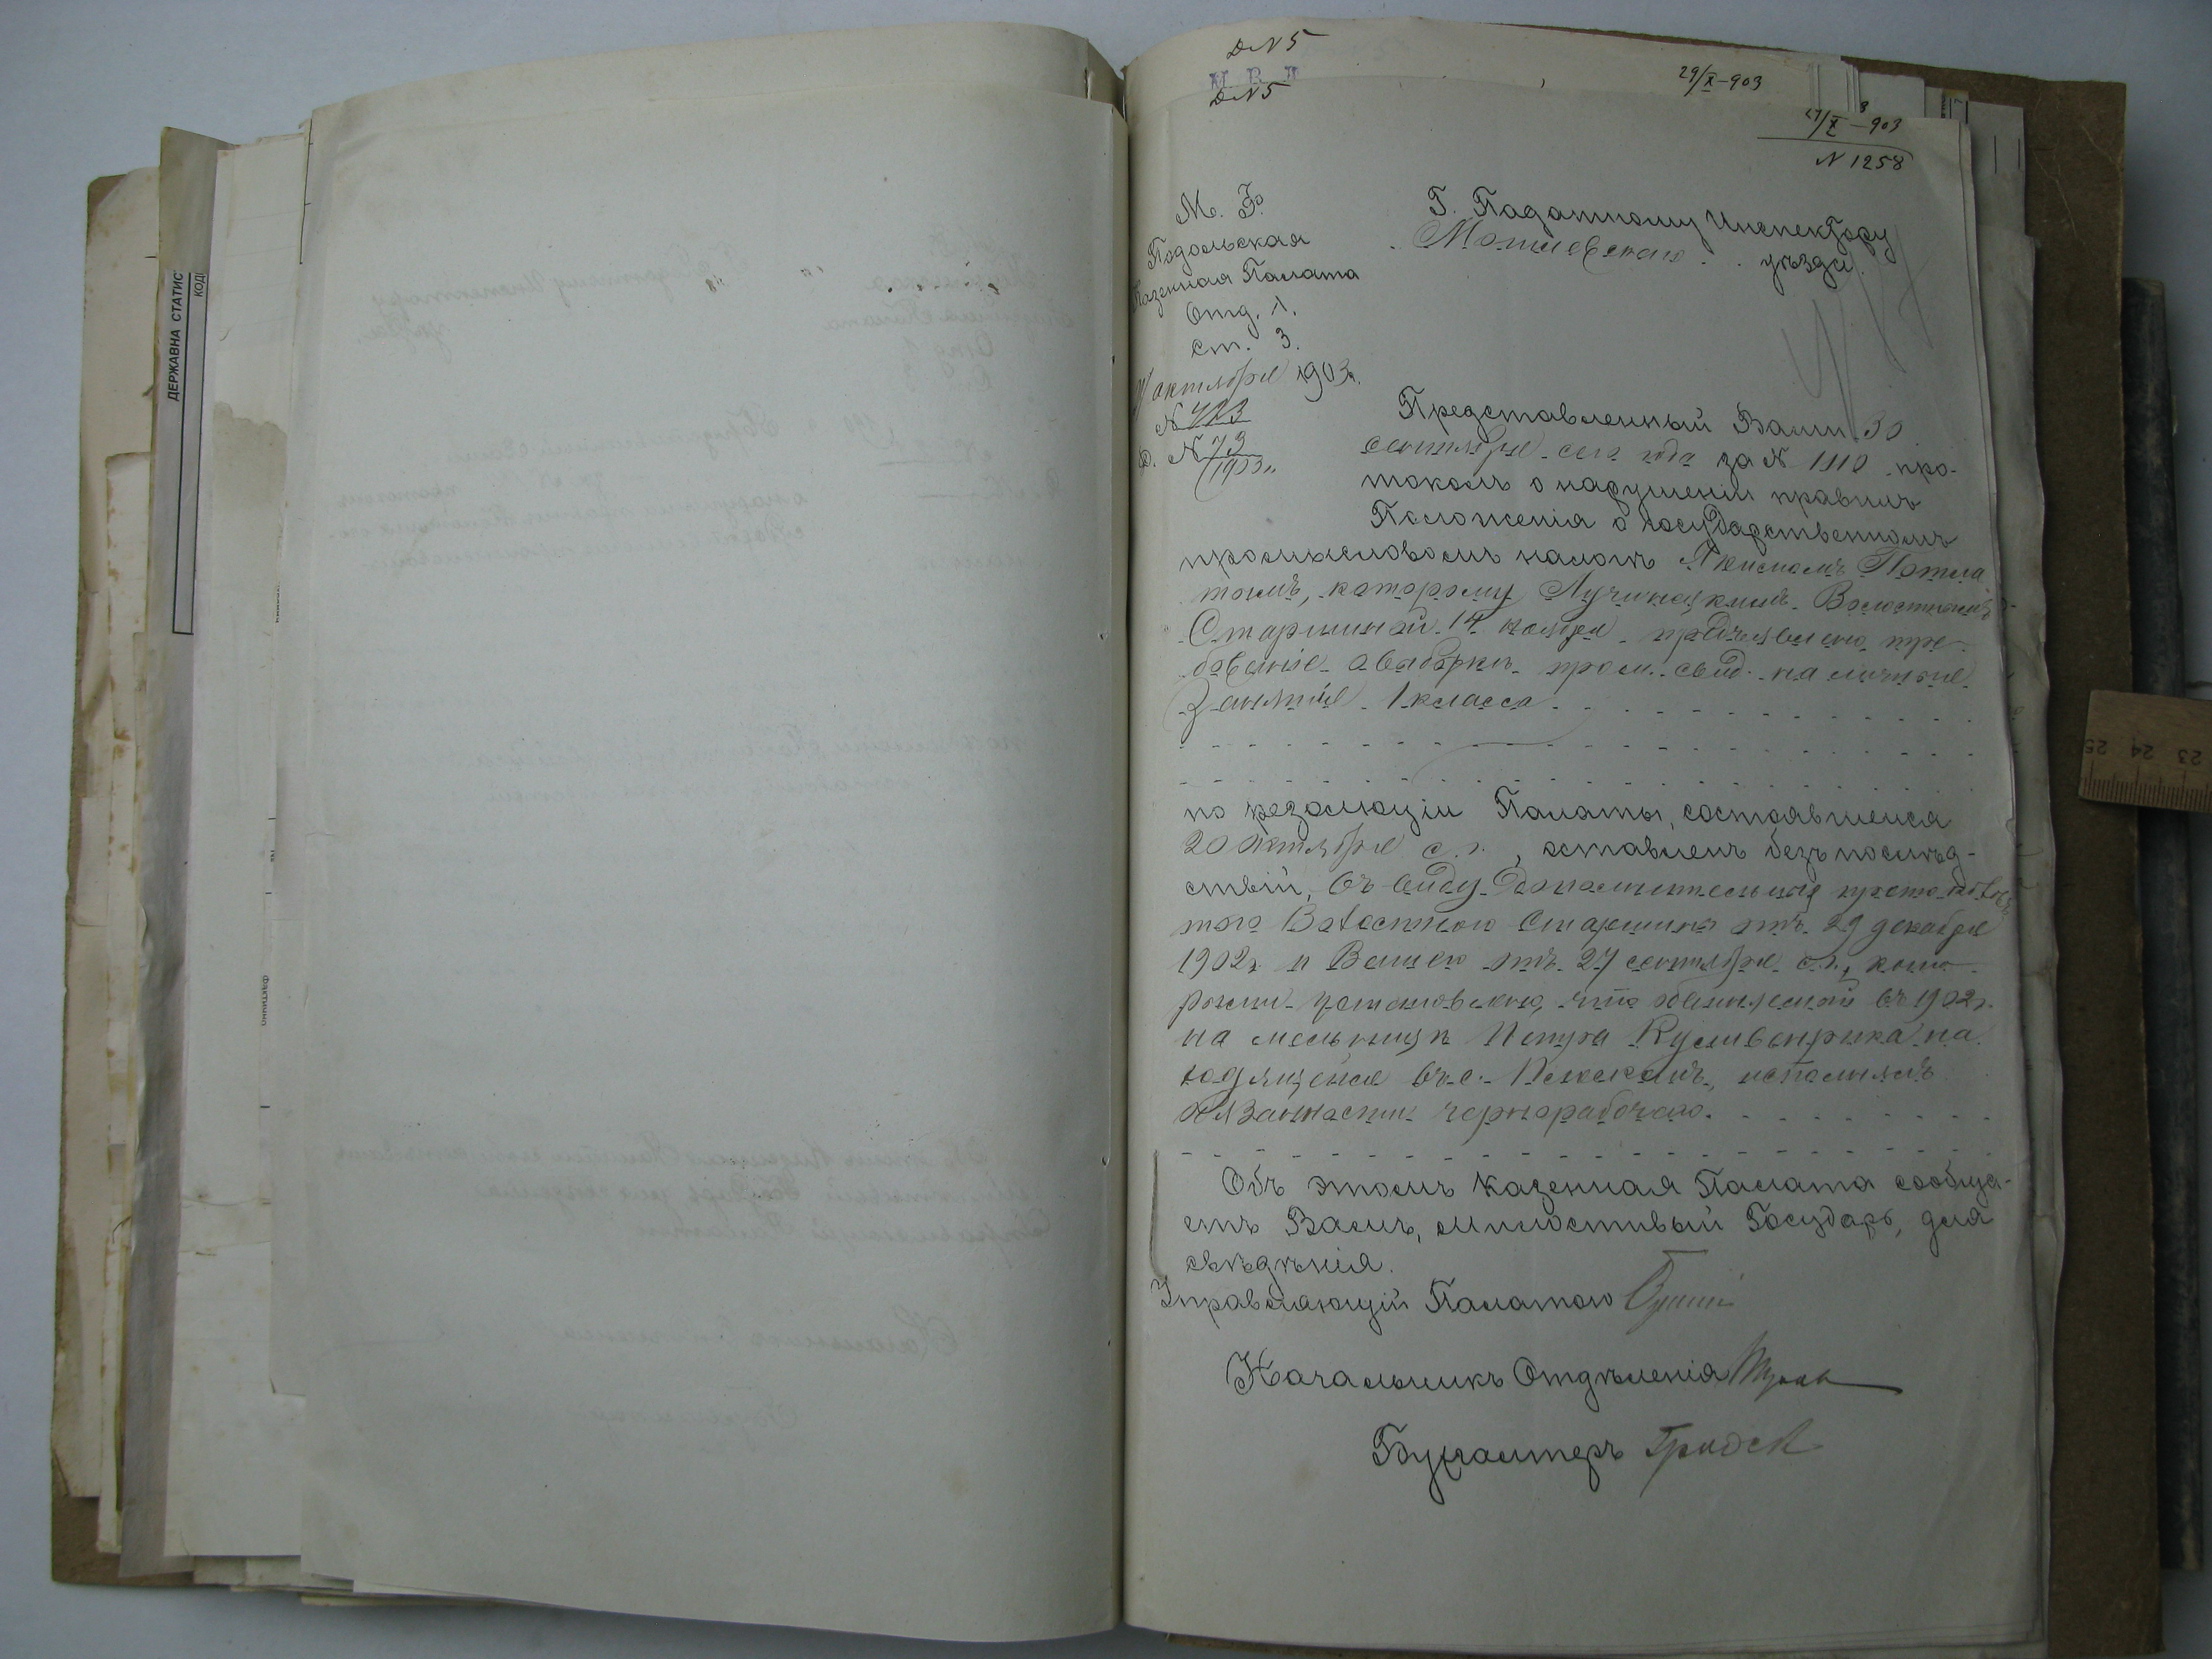 Д N 5
М. В. Д.
Д N 5
29/X-903
27/X-903
N 1258
М. Ф.
Подольская
Казенная Палата
Отд. 1.
ст. 3.
октября 1903 г.
N 723
Д. N 73
1903 г.
Г. Податному Инспектору
Могилевскаго уѣзда.
Представленный Вами 30
сентября сего года за N 1110 про-
токолъ о нарушеніи правилъ
Положенія о государственномъ
промысловомъ налогѣ Якимомъ
которому Лучинецкимъ Волостнымъ
Старшиной 14 ноября предъявлено тре-
бованіе о выборкѣ пром. свид. на личное
занятіе 1 класса.
по резолюціи Палаты, состоявшейся
20 октября с. г., оставленъ безъ послѣд-
ствій, въ виду дополнительныхъ протоколовъ
того Волостного Старшины отъ 29 декабря
1902 г. и Вашего отъ 27 сентября с. г., кото-
рыми установлено, что обвиняемый въ 1902 г.
на мельницѣ на
ходящейся въ с. исполнялъ
обязанности чернорабочаго.
Объ этомъ Казенная Палата сообща-
етъ Вамъ, Милостивый Государь, для
свѣдѣнія.
Управляющій Палатою
Начальникъ Отдѣленія
Бухгалтеръ
ДЕРЖАВНА СТАТИС
КОД
25 24 23